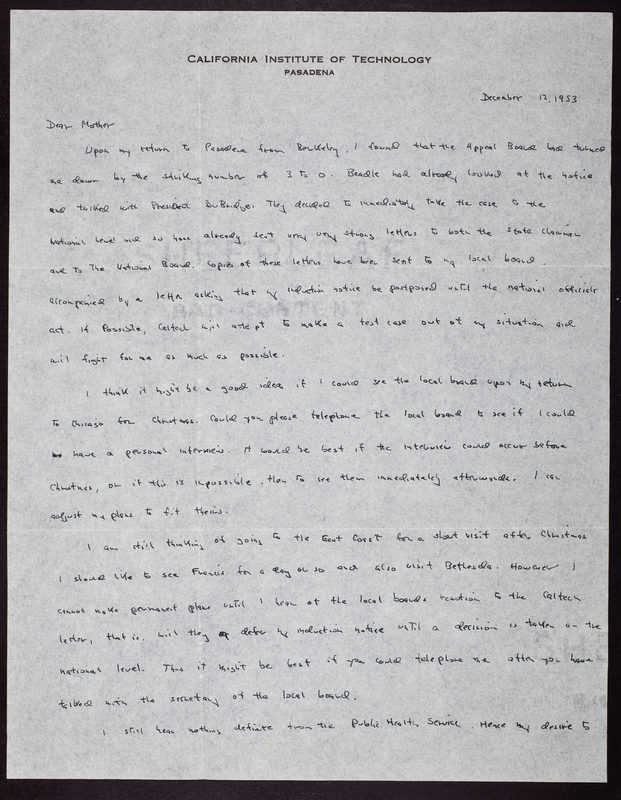 CALIFORNIA INSTITUTE OF TECHNOLOGY
PASADENA
December 12, 1953
Dear Mother
Upon my return to Pasadena from Berkeley, I found that the Appeal Board had turned
me down by the striking number of 3 to 0. Beadle had already looked at the notice
and talked with President DuBridge. They decided to immediately take the case to the
National level and so have already sent very very strong letters to both the State Chairman
and to The National Board. Copies of these letters have been sent to my local board
accompanied by a letter asking that my induction notice be postponed until the national officials
act. If possible, Caltech will attempt to make a test case out of my situation and
will fight for me as much as possible.
I think it might be a good idea if I could see the local board upon my return
to Chicago for Christmas. Could you please telephone the local board to see if I could
have a personal interview. It would be best if the interview could occur before
Christmas, or if this is impossible, then to see them immediately afterwards. I can
adjust my plans to fit theirs.
I am still thinking of going to the East Coast for a short visit after Christmas
I should like to see Francis for a day or so and also visit Bethesda. However I
cannot make permanent plans until I hear of the local boards reaction to the Caltech
letter, that is, will they defer my induction notice until a decision is taken on the
national level. Thus it might be best if you could telephone me after you have
talked with the secretary of the local board.
I still hear nothing definite from the Public Health Service. Hence my desire to